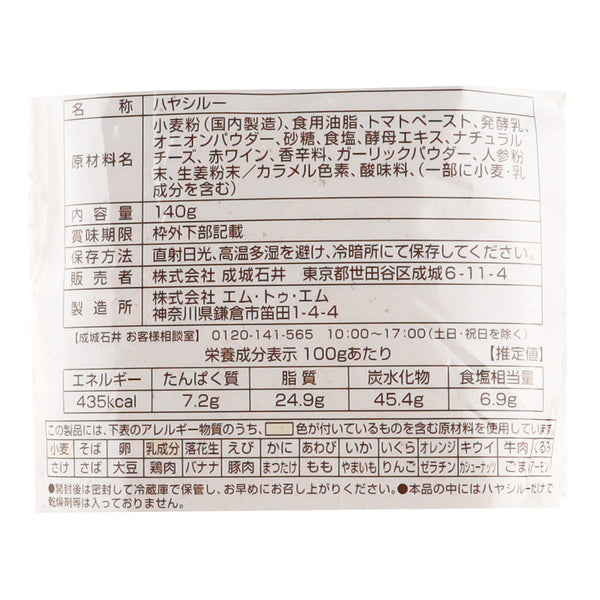 名称 ハヤシルー
原材料名 小麦粉(国内製造)、食用油脂、トマトペースト、発酵乳、
オニオンパウダー、砂糖、食塩、酵母エキス、ナチュラル
チーズ、赤ワイン、香辛料、ガーリックパウダー、人参粉
末、生姜粉末/カラメル色素、酸味料、(一部に小麦・乳
成分を含む)
内容量 140g
賞味期限 枠外下部記載
保存方法 直射日光、高温多湿を避け、冷暗所にて保存してください。
販売者 株式会社 成城石井 東京都世田谷区成城6-11-4
製造所 株式会社 エム・トゥ・エム
神奈川県鎌倉市笛田1-4-4
【成城石井 お客様相談室】 0120-141-565 10:00~17:00(土日・祝日を除く)
栄養成分表示 100gあたり 【推定値】
エネルギー たんぱく質 脂質 炭水化物 食塩相当量
435kcal 7.2g 24.9g 45.4g 6.9g
この製品には、下表のアレルギー物質のうち、 色が付いているものを含む原材料を使用しています
小麦 そば 卵 乳成分 落花生 えび かに あわび いか いくら オレンジ キウイ 牛肉 くるみ
さけ さば 大豆 鶏肉 バナナ 豚肉 まつたけ もも やまいも りんご ゼラチン カシューナッツ ごま アーモンド
●開封後は密封して冷蔵庫で保管し、お早めにお召し上がりください。 ●本品の中にはハヤシルーだけで
乾燥剤等は入っておりません。